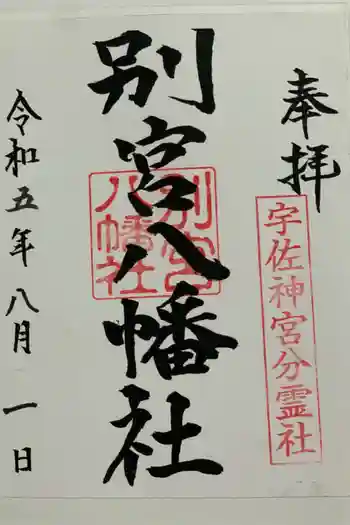 奉拝
宇佐神宮分霊社
別宮八幡社
別宮
八幡社
令和五年八月一日